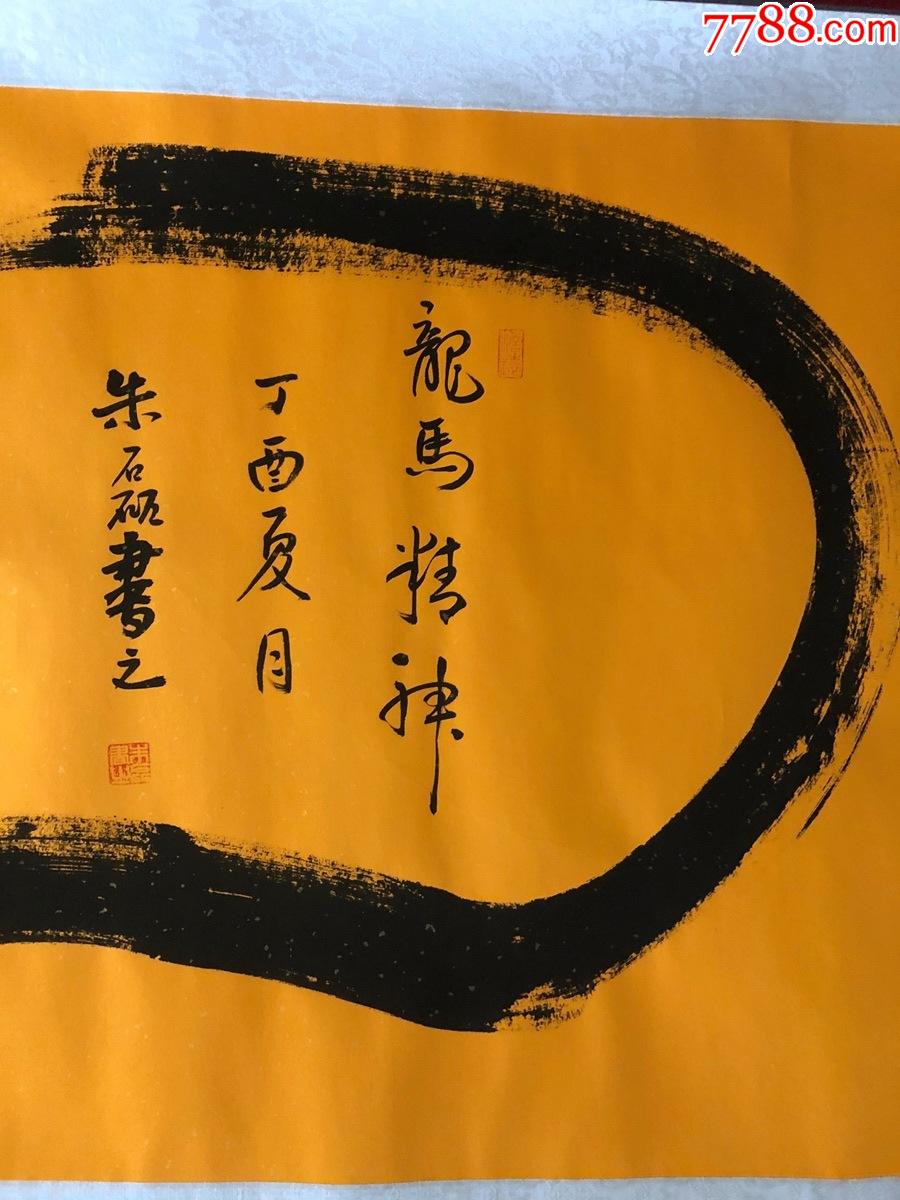 7788.com
龍馬精神
丁酉夏月
朱石砳書之